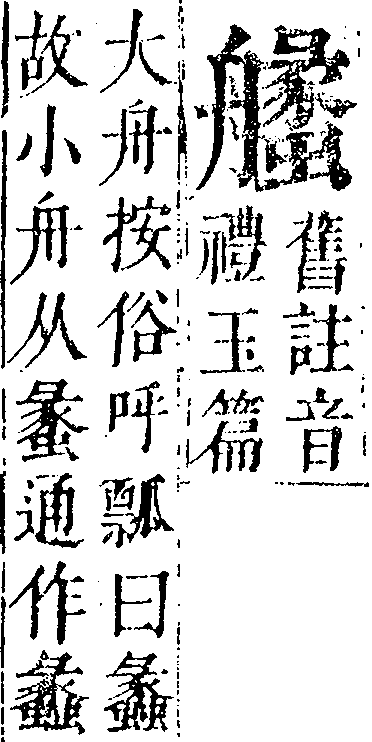 舊註音
禮玉篇
大舟按俗呼瓢曰蠡
故小舟从蟸通作蠡